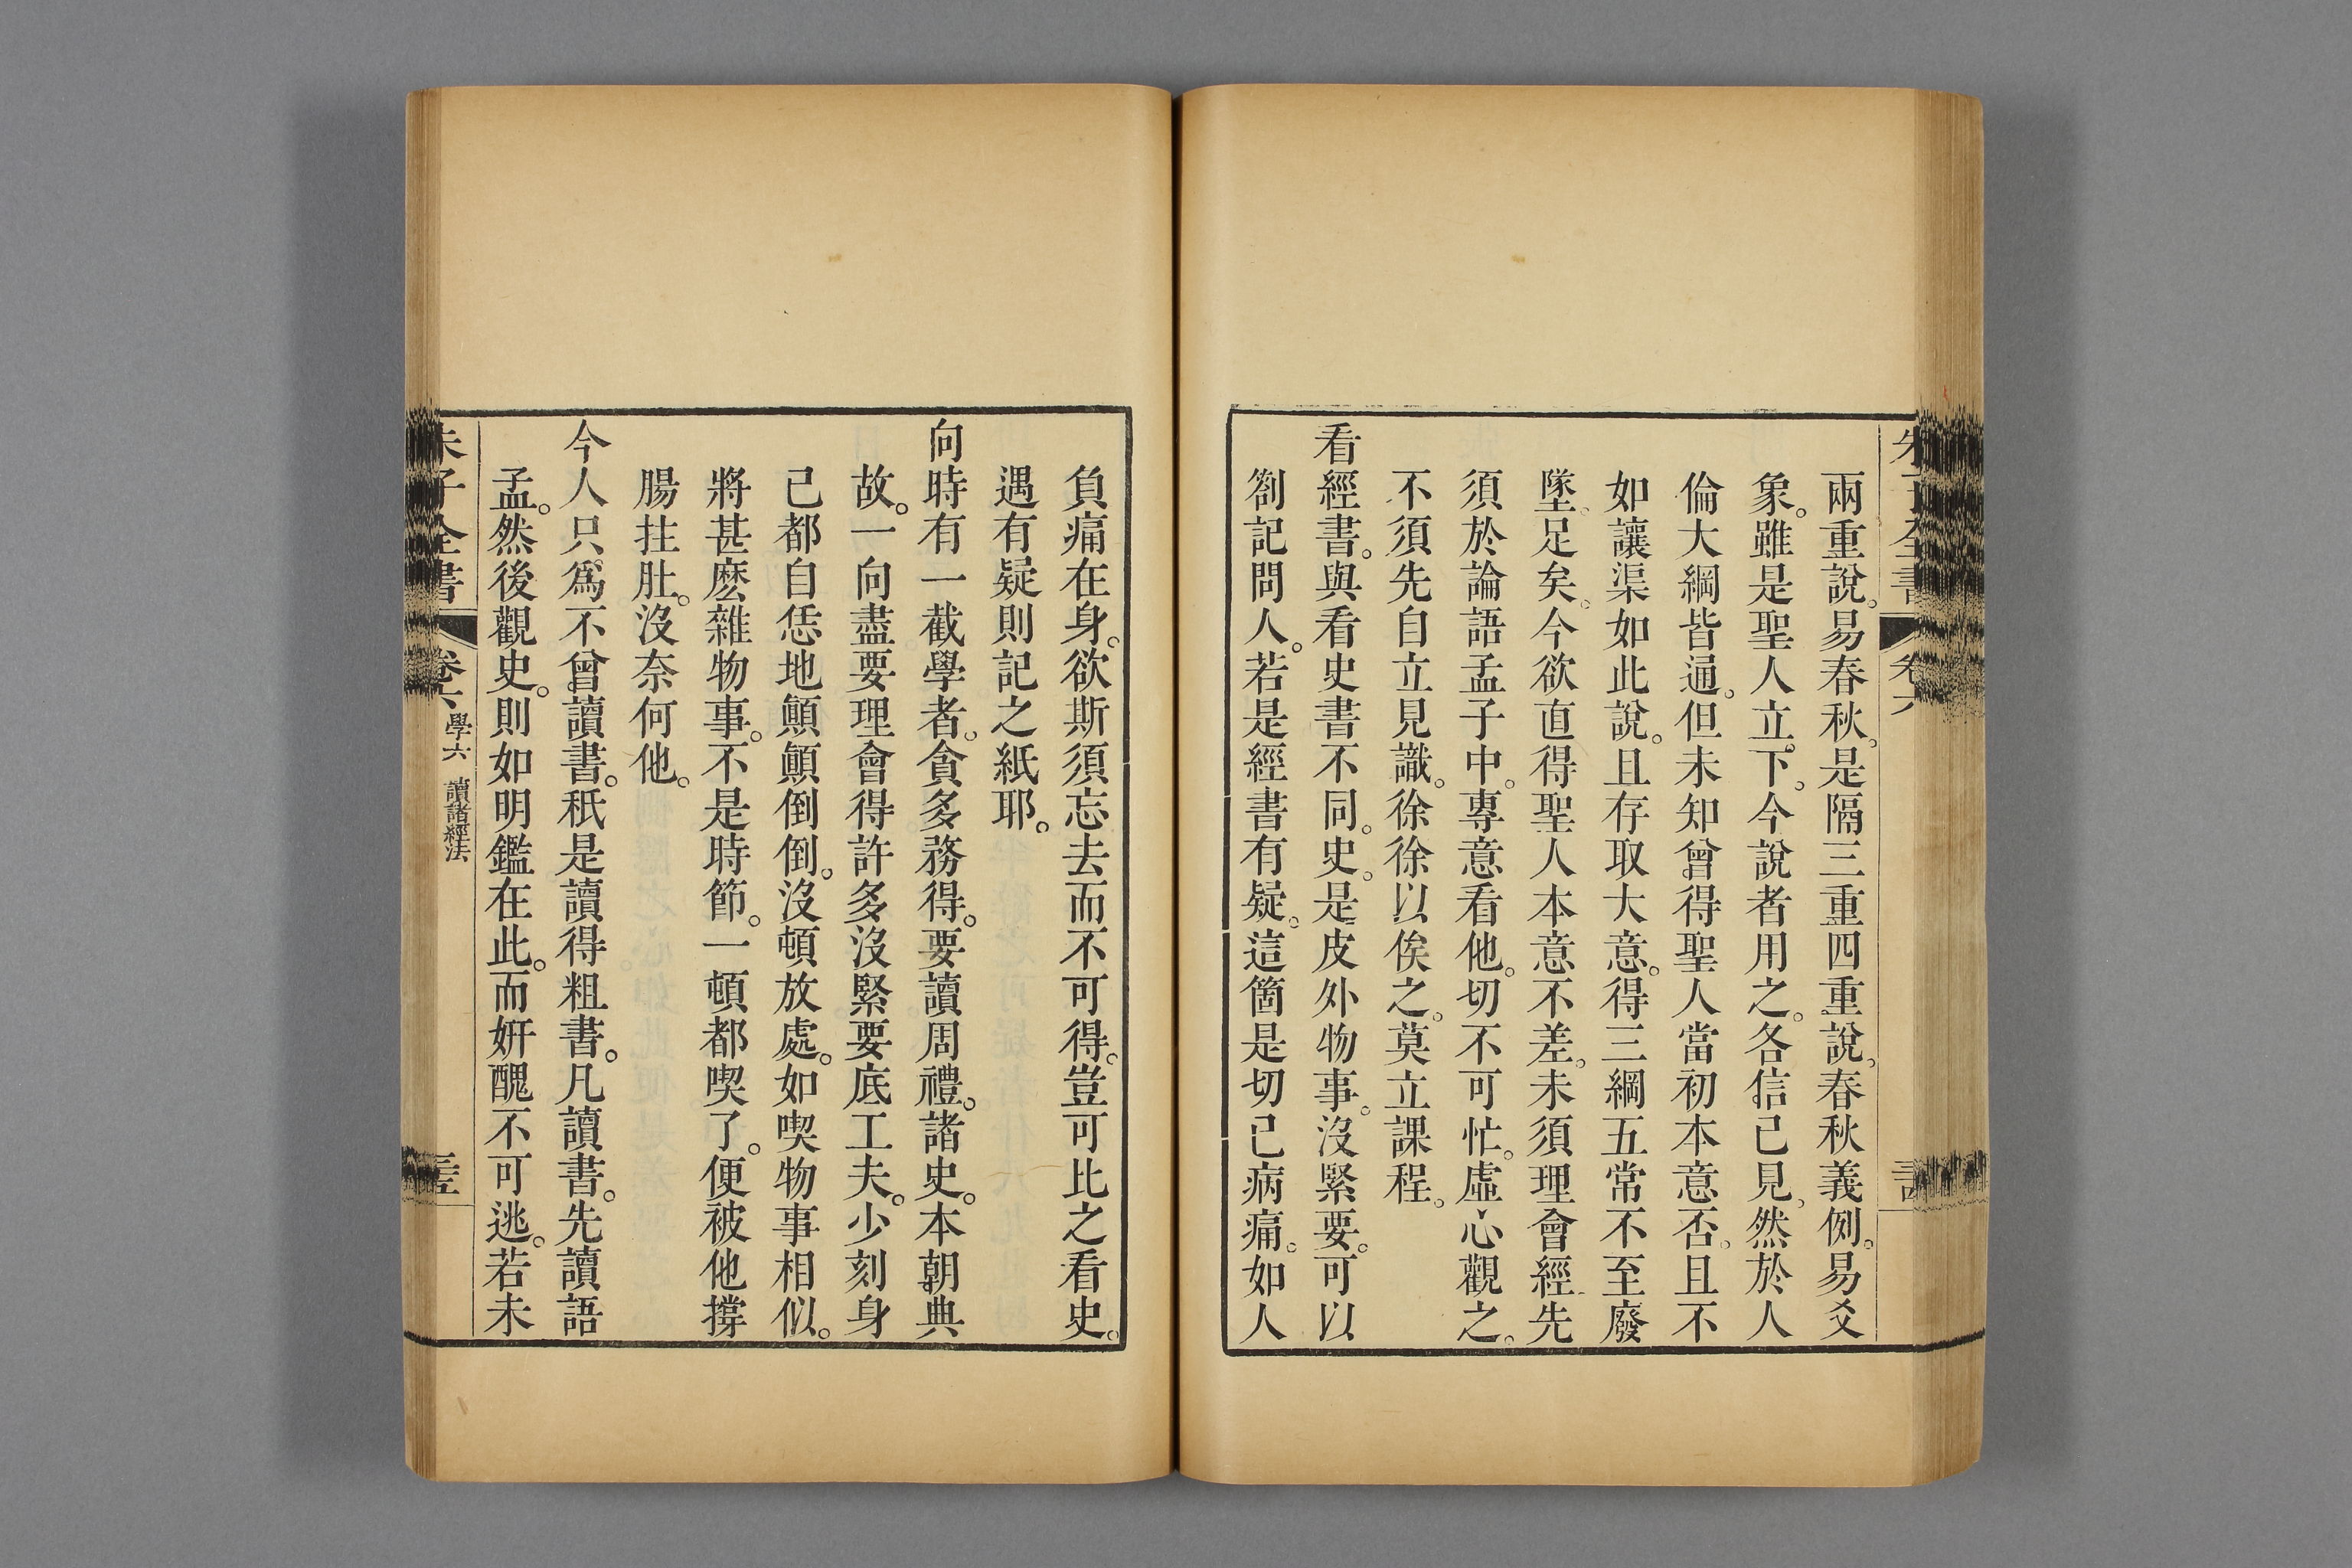 兩重說。易春秋。是隔三重四重說。春秋義例。易爻
象。雖是聖人立下。今說者用之。各信己見。然於人
倫大綱皆通。但未知曾得聖人當初本意否。且不
如讓渠如此說。且存取大意。得三綱五常不至廢
墜足矣。今欲直得聖人本意不差。未須理會經先
須於論語孟子中。專意看他。切不可忙。虛心觀之。
不須先自立見識。徐徐以俟之。莫立課程。
看經書。與看史書不同。史。是皮外物事。沒緊要。可以
劄記問人。若是經書有疑。這箇是切己病痛。如人
負痛在身。欲斯須忘去而不可得。豈可比之看史。
遇有疑則記之紙耶。
向時有一截學者。貪多務得。要讀周禮。諸史。本朝典
故。一向盡要理會得許多沒緊要底工夫。少刻身
己都自恁地顛顛倒倒。沒頓放處。如喫物事相似。
將甚麽雜物事。不是時節。一頓都喫了。便被他撐
腸拄肚。沒奈何他。
今人只爲不曾讀書。秖是讀得粗書。凡讀書。先讀語
孟。然後觀史。則如明鑑在此。而妍醜不可逃。若未
朱子全書
卷六
學六
讀諸經法